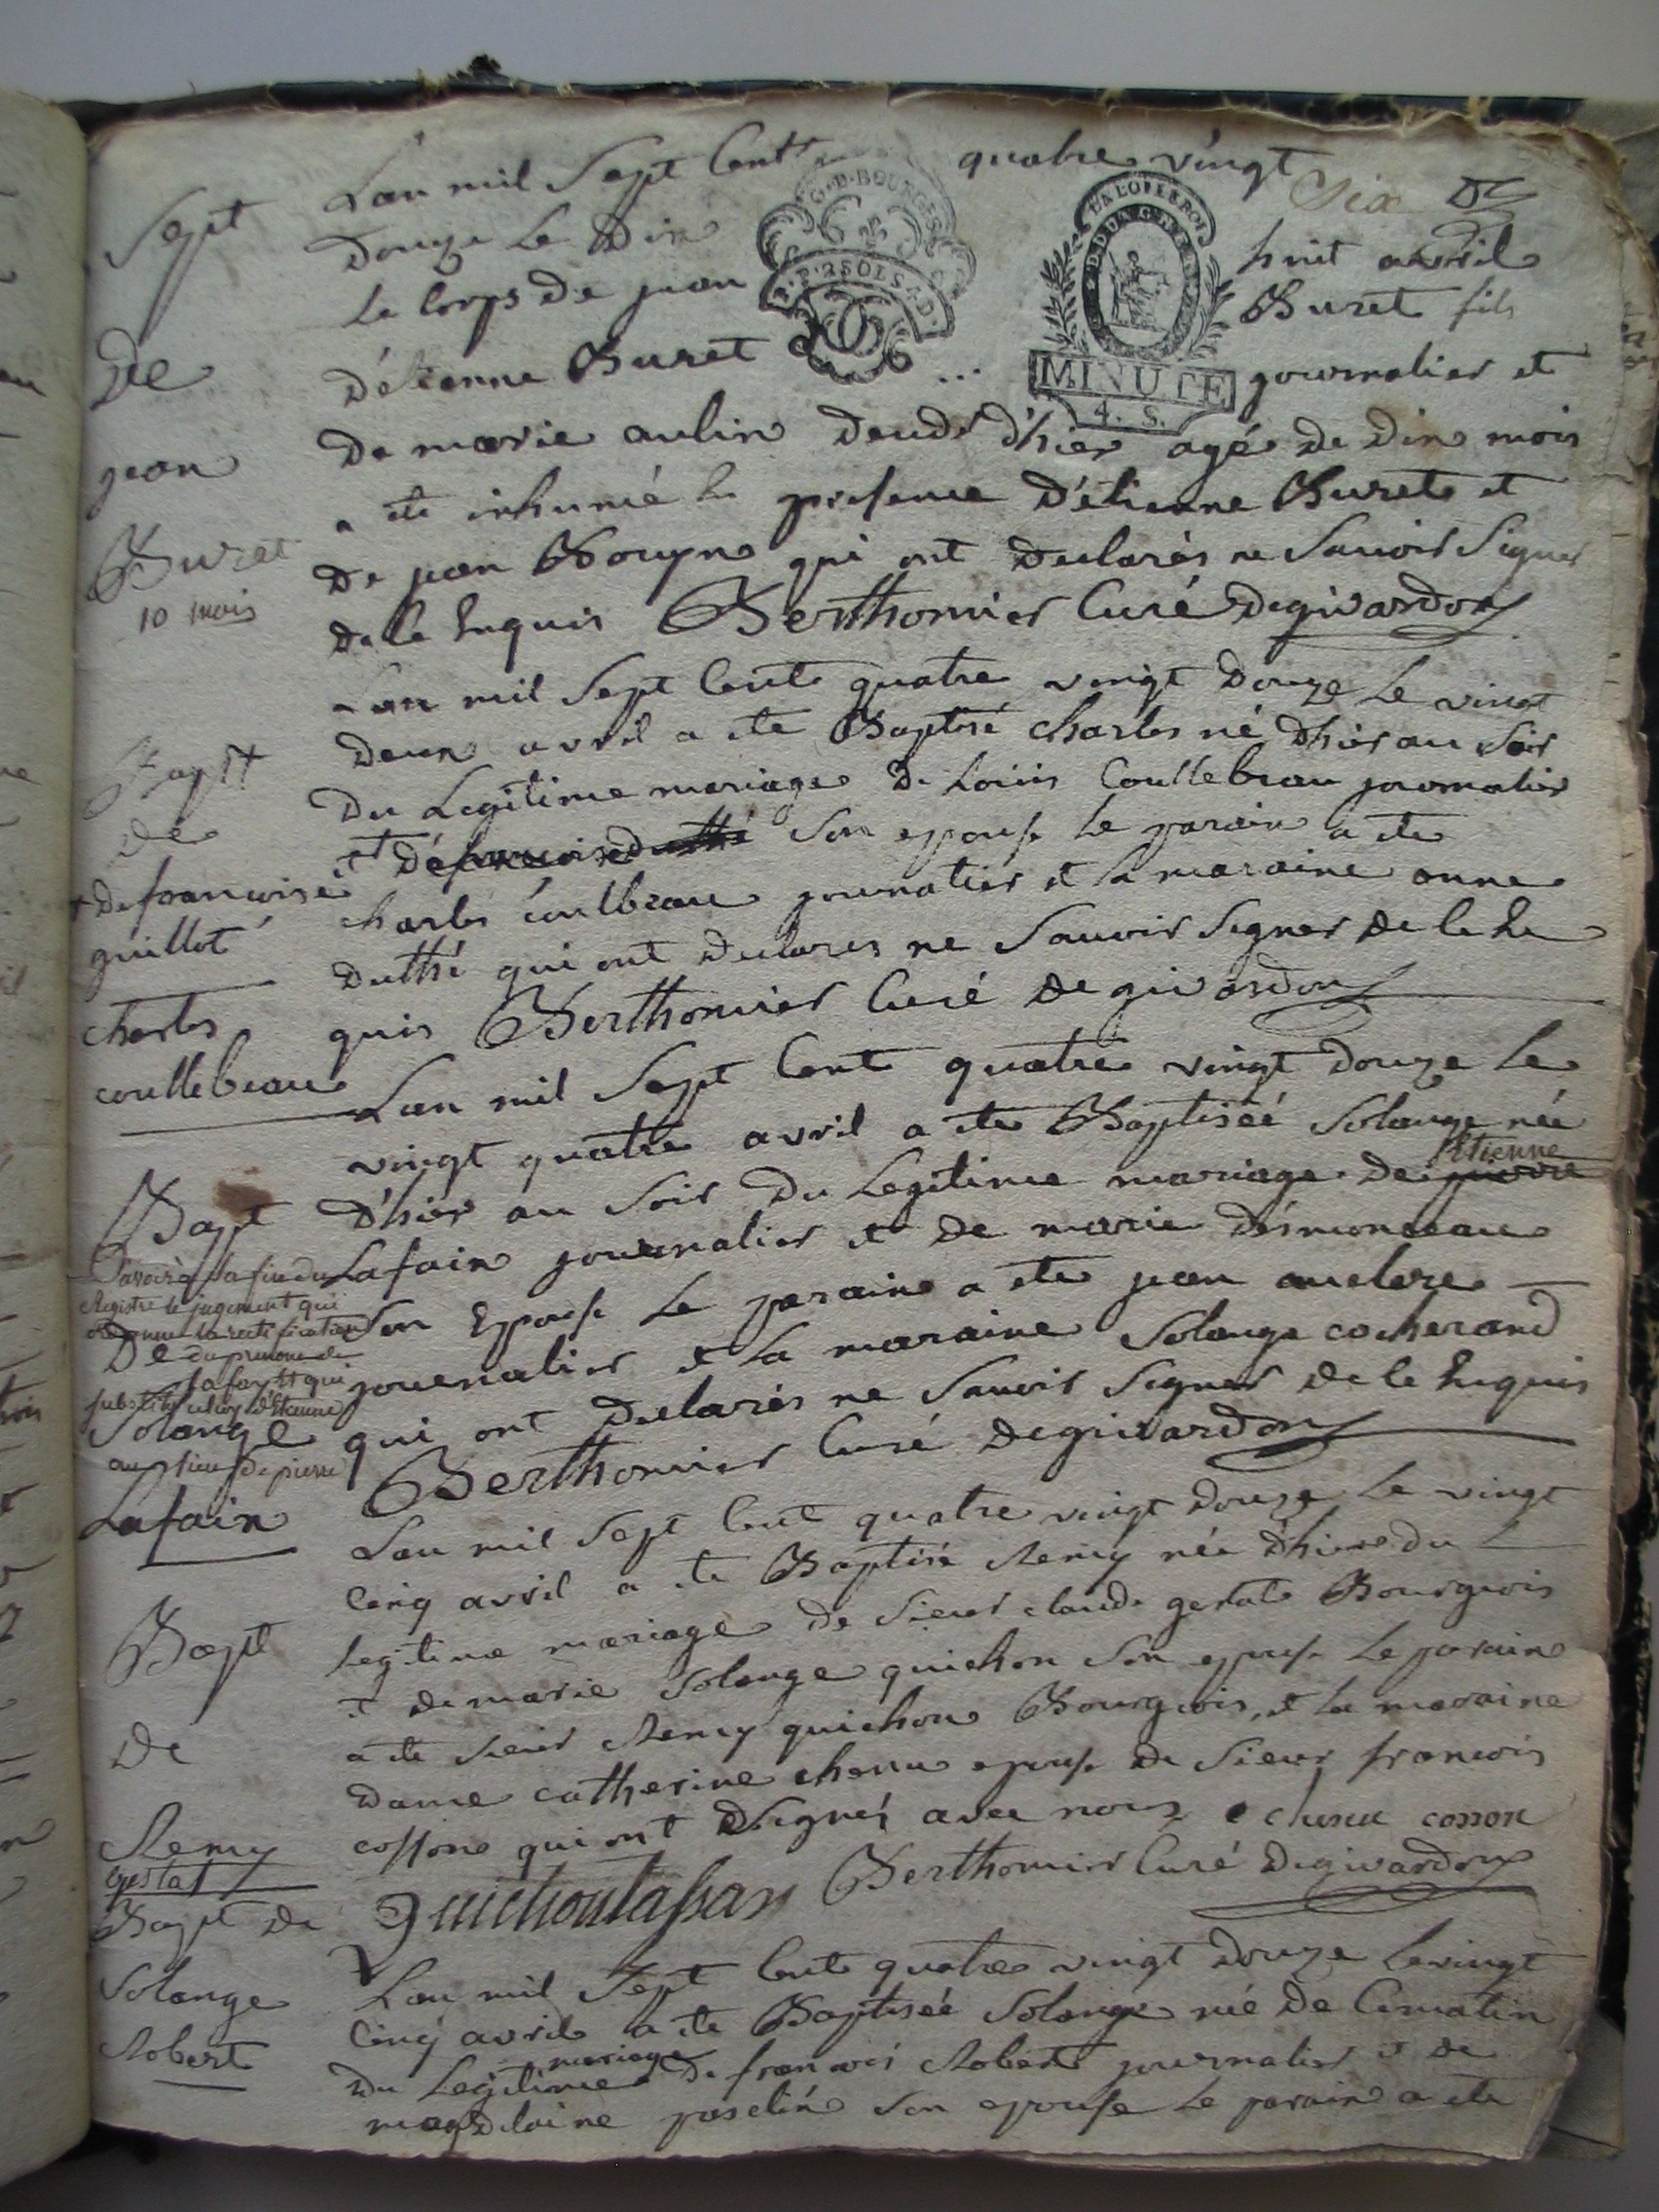 Lan mil Sept Cent quatre vingt
Six
Sept
Douze Le Dix huit avril
Le Corps De jean Buret fils
De
D'étienne Buret journalier et
G.D. BOURGES
2 SOLS
LA LOI ET LE ROI
MINUTE
4. S.
jean
De marie aulin deudé d'hier agé De Dix mois
a ete inhumé En presence D'étienne Buret et
Buret
10 mois
De jean Bougne qui ont Declarés ne Savoir Signer
De le Enquis Berthomier Curé Degivardon
Lan mil Sept Cent quatre vingt Douze Le vingt
Bapt
Deux avril a ete Baptisé charles né D'hier au Soir
De
Du Legitime mariage De Louis Coullebeau journalier
+ De francoise
guillot
et De francoise duthé Son epouse Le parain a ete
charles coulbeau journalier et La maraine anne
charles
coullebeau
duthé qui ont Declares ne Savoir Signer De le En
quis Berthomier Curé De givardon
Lan mil Sept Cent quatre vingt Douze Le
vingt quatre avril a ete Baptiseé Solange née
Etienne
Bapt
D'hier au Soir Du Legitime mariage De pierre
Lafaix journalier et De marie Desmonceau
avoir à la fin du
Registre le jugement qui
ordonne la rectification
De
du prenom de
Lafay et qui
substitue celui d'Etienne
Solange
au lieu de pierre
Lafaix
Son Epouse Le parain a ete jean auclere
journalier et La maraine Solange cocherand
qui ont Declarés ne Savoir Signer De le Enquis
Berthomier Curé Degivardon
Lan mil Sept Cent quatre vingt Douze Le vingt
Cinq avril a ete Baptisé Remy née D'hier Du
Bapt
legitime mariage De Sieur claude gestat Bourgeois
et De marie Solange quichon Son epouse Le parain
De
a ete Sieur Remy quichon Bourgeois, et La maraine
Dame catherine chenu epouse De Sieur francois
Remy
gestat
cosson qui ont Signés avec nous chenu cosson
Berthomier Curé Degivardon
Bapt De
Solange
Robert
Lan mil Sept Cent quatre vingt Douze Le vingt
Cinq avril a ete Baptiseé Solange née De Ce matin
mariage
Du Legitime De francois Robert journalier et De
magdelaine poselin Son epouse Le parain a ete